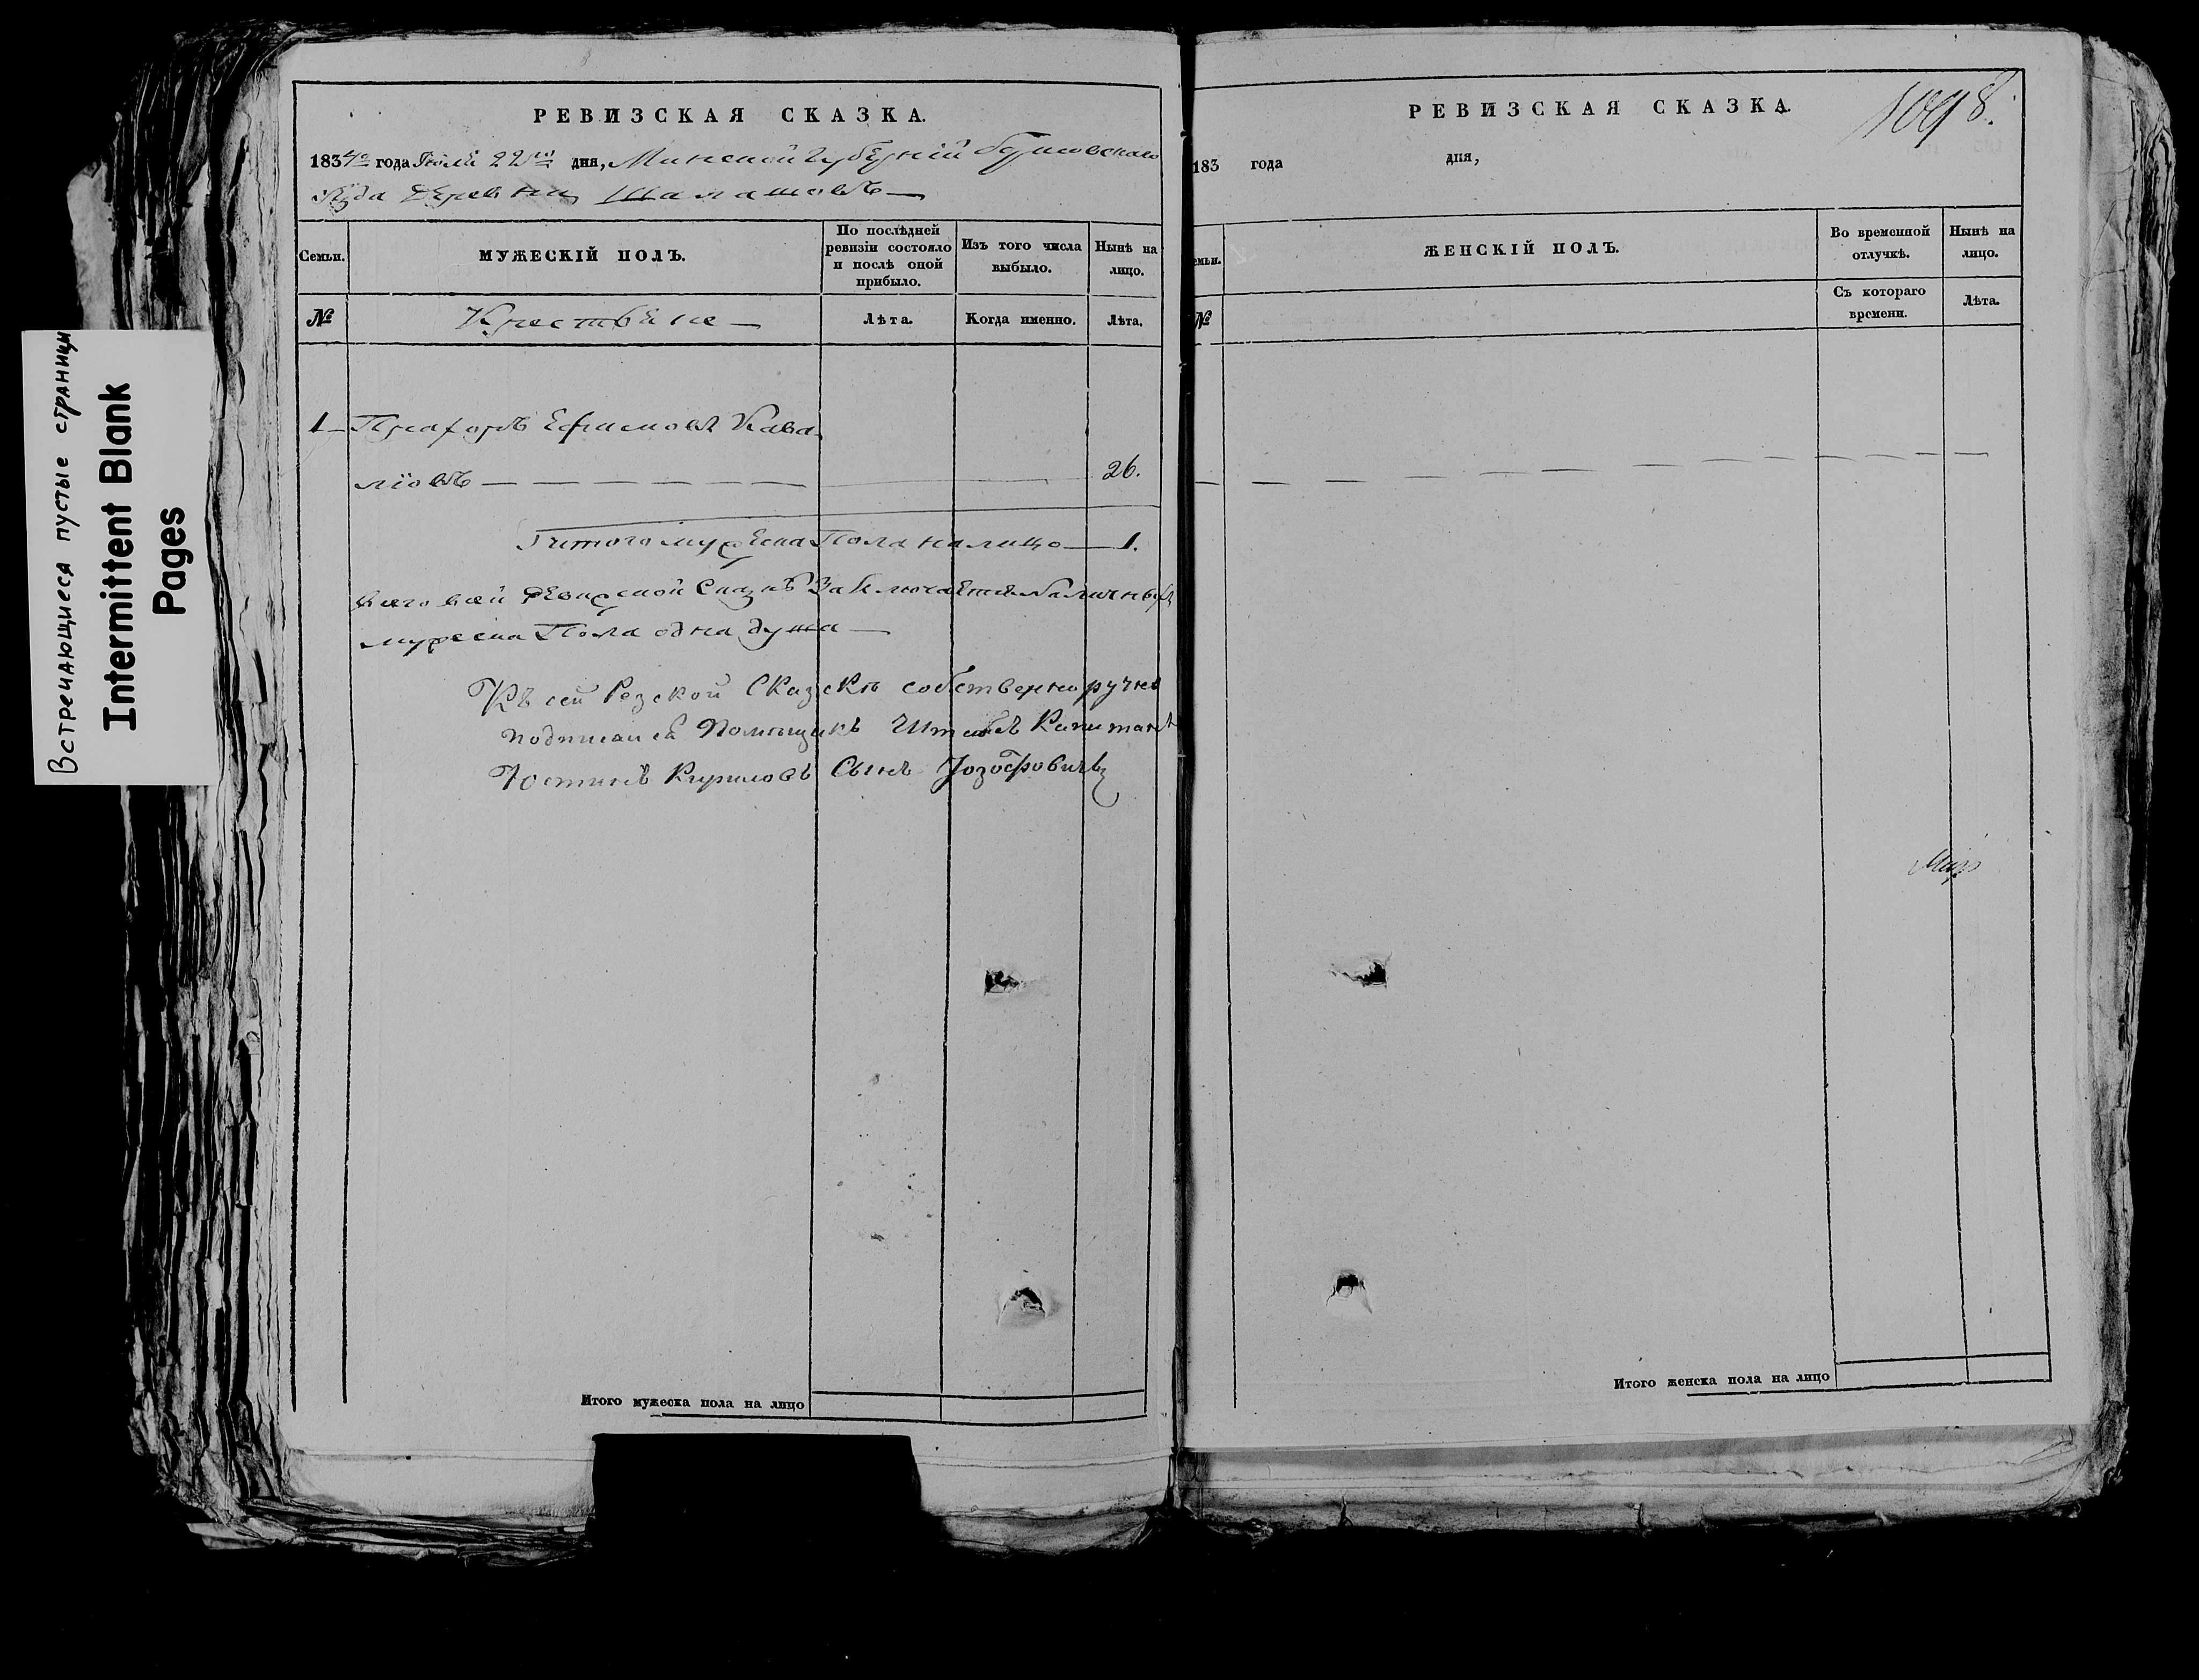 Встречающиеся пустые страницы
Intermittent Blank
Pages
РЕВИЗСКАЯ СКАЗКА.
1834го года Июля 22го дня, Минской Губерній Борисовскаго
Уѣзда Деревни Шалашовъ —
Семьи.
МУЖЕСКІЙ ПОЛЪ.
По послѣдней
ревизіи состояло
и послѣ оной
прибыло.
Изъ того числа
выбыло.
Нынѣ на
лицо.
№
Крестьяне —
Лѣта.
Когда именно.
Лѣта.
1 — Ефимовъ Кава
ліовъ — 26.
Итого мужеска Пола на лицо — 1.
Всего въ сей Ревизской Сказкѣ Заключается Наличныхъ
мужеска Пола одна душа —
Къ сей Резской Сказскѣ собственноручно
подписался Помѣщикъ Штабсъ Капитанъ
Юстинъ Кириловъ Сынъ Іозофовичъ
Итого мужеска пола на лицо
РЕВИЗСКАЯ СКАЗКА.
1098.
183 года дня,
емьи.
ЖЕНСКІЙ ПОЛЪ.
Во временной
отлучкѣ.
Нынѣ на
лицо.
№
Съ котораго
времени.
Лѣта.
Итого женска пола на лицо